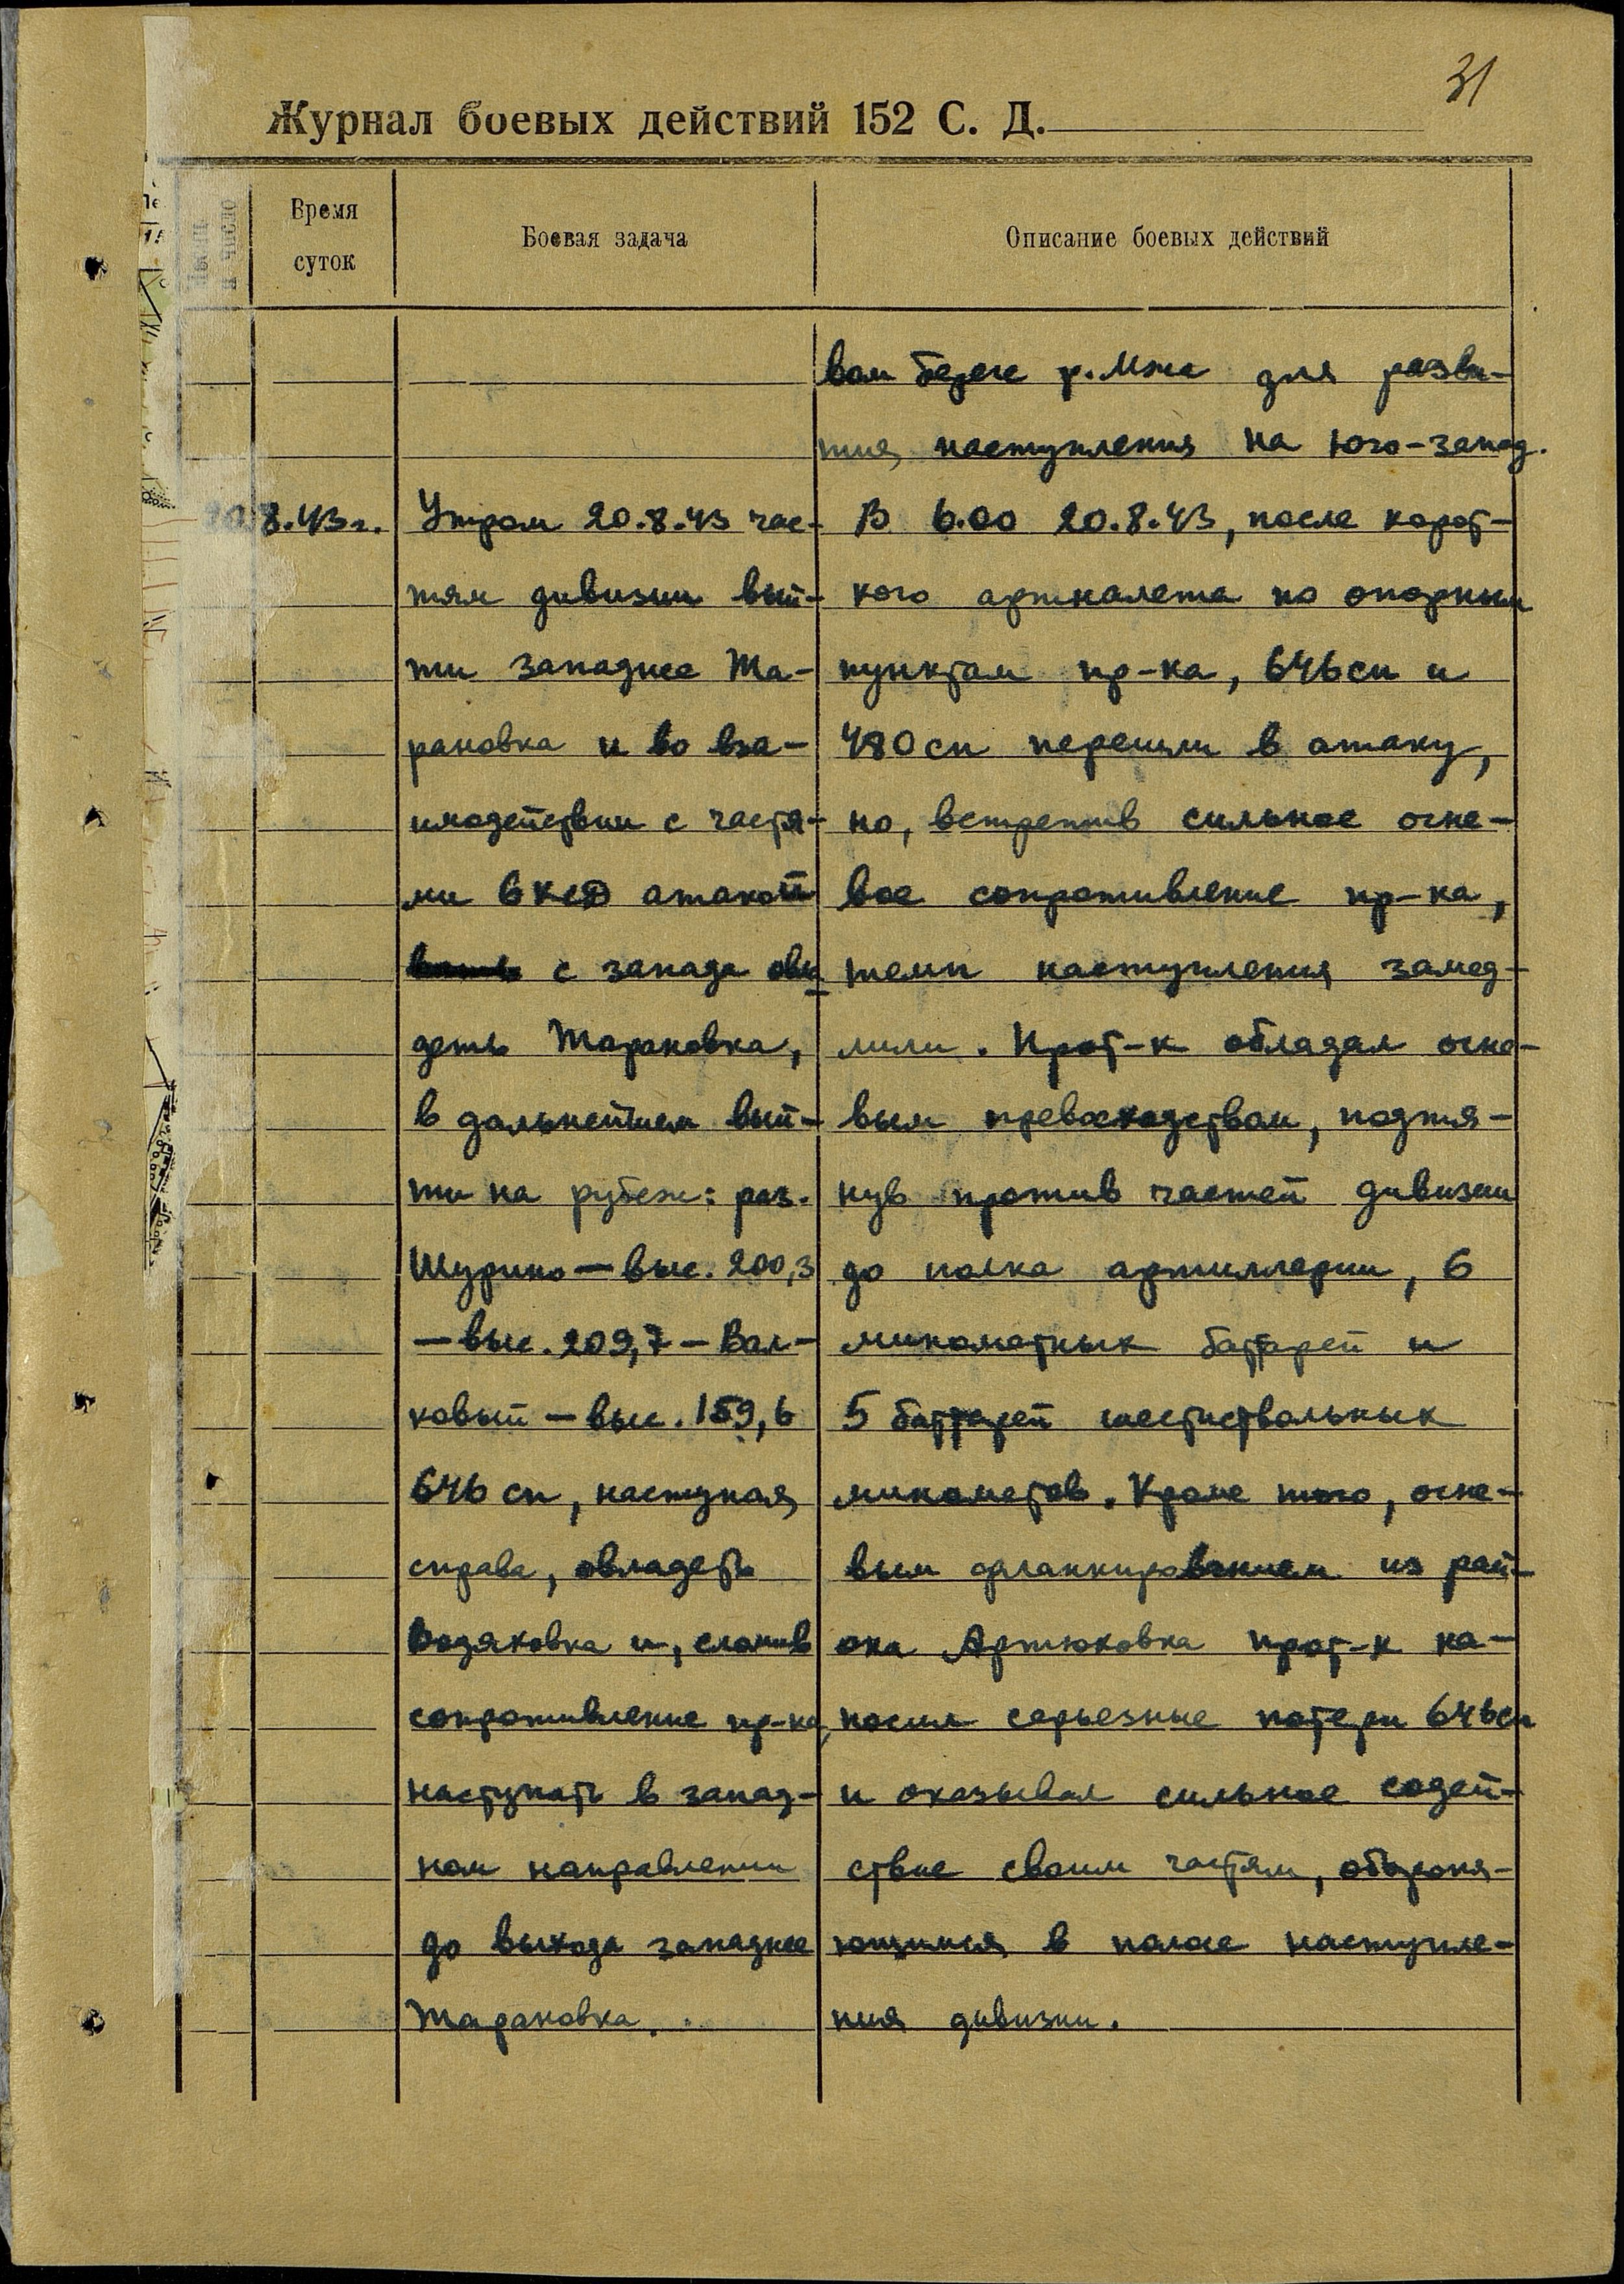 31
Журнал боевых действий 152 С. Д.
Время
суток
Боевая задача
Описание боевых действий
вом береге р. Мжа для разви-
тия наступления на юго-запад.
20.8.43г.
Утром 20.8.43 час-
тям дивизии вый-
ти западнее Та-
рановка и во вза-
имодействии с частя-
ми 6 КСД атакой
с запада овла-
деть Тарановка,
в дальнейшем вый-
ти на рубеж: раз.
Шурино — выс. 200,3
— выс. 209,7 — Вол-
ковый — выс. 159,6
646 сп, наступая
справа, овладеть
Водяховка и, сломив
сопротивление пр-ка,
наступать в запад-
ном направлении
до выхода западнее
Тарановка.
В 6.00 20.8.43, после корот-
кого артналета по опорным
пунктам пр-ка, 646 сп и
480 сп перешли в атаку,
но, встретив сильное огне-
вое сопротивление пр-ка,
темп наступления замед-
лили. Прот-к обладал огне-
вым превосходством, подтя-
нув против частей дивизии
до полка артиллерии, 6
минометных баттарей и
5 баттарей шестиствольных
минометов. Кроме того, огне-
вым фланкированием из рай-
она Артюховка прот-к на-
носил серьезные потери 646 сп
и оказывал сильное содей-
ствие своим частям, обороня-
ющимся в полосе наступле-
ния дивизии.